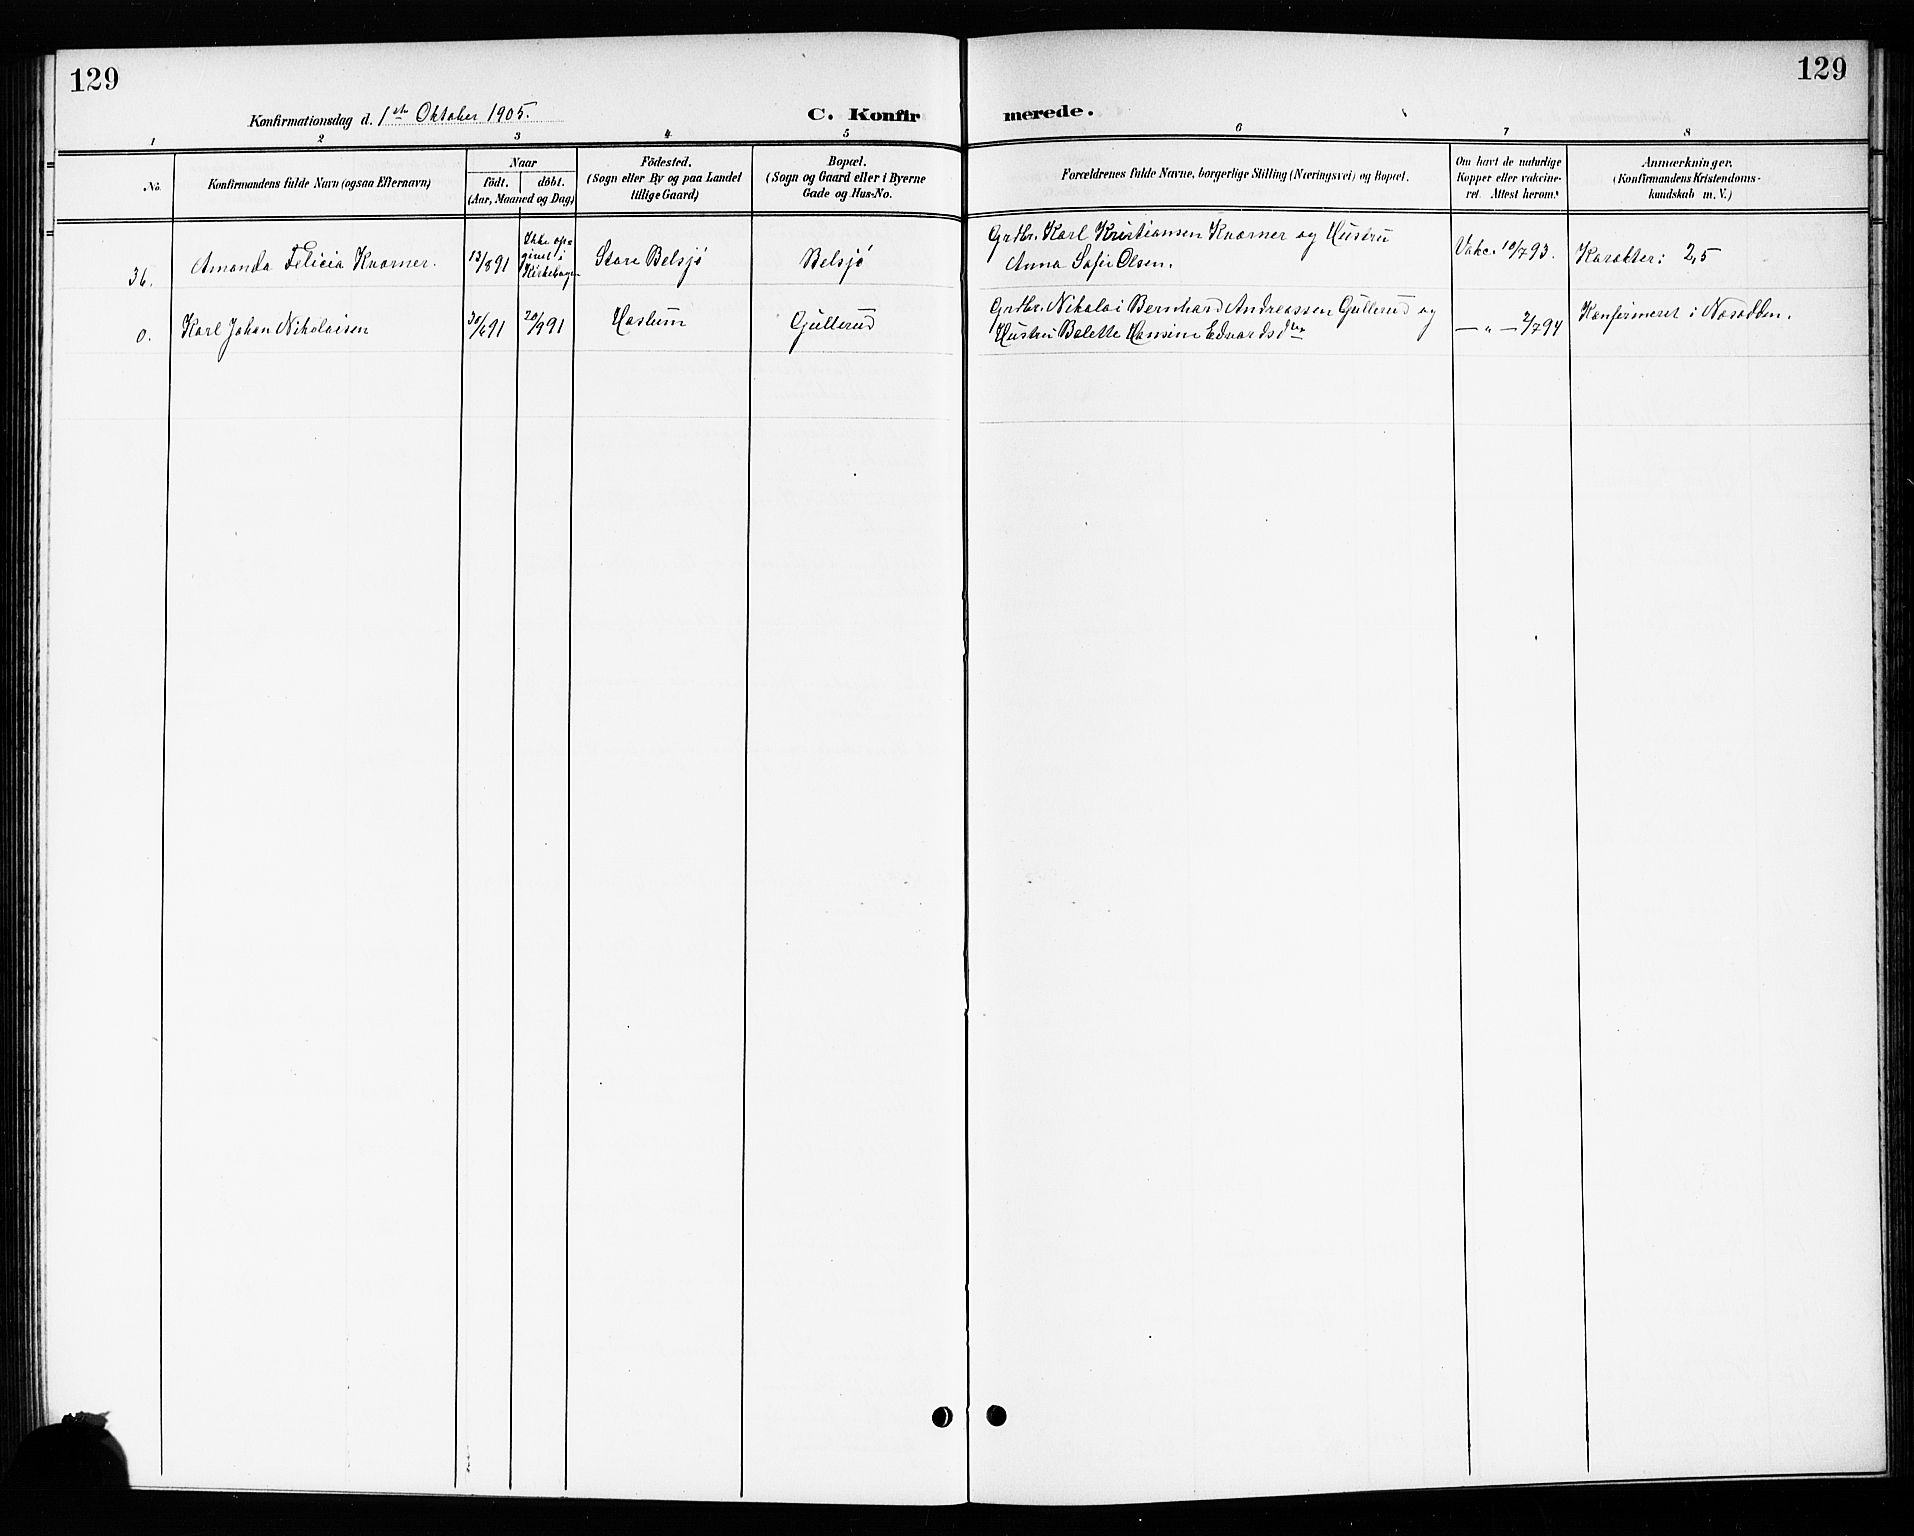 129
129
Konfirmationsdag d. 1ste Oktober 1905.
C. Konfirmerede.
1 2 3 4 5 6 7 8
No.
Konfirmandens fulde Navn (ogsaa Efternavn)
Naar
födt. döbt.
(Aar, Maaned og Dag)
Födested.
(Sogn eller By og paa Landet
tillige Gaard)
Bopæl.
(Sogn og Gaard eller i Byerne
Gade og Hus-No.
Forældrenes fulde Navne, borgerlige Stilling (Næringsvei) og Bopæl.
Om havt de naturlige
Kopper eller vakcine-
ret. Attest herom.
Anmærkninger.
(Konfirmandens Kristendoms-
kundskab m. V.)
36.
Amanda Felicia Kværner.
13/8 91
Ikke op-
givet i
Kirkebogen
Store Belsjø
Belsjø
Grdbr. Karl Kristiansen Kværner og Hustru
Anna Sofie Olsen.
Vakc. 10/7 93.
Karakter: 2,5
0.
Karl Johan Nikolaisen
30/6 91
20/9 91
Haslum
Gullerud
Grdbr. Nikolai Bernhard Andreassen Gullerud og
Hustru Balette Hansine Edvardsd
— „ — 2/7 94
Konfirmeret i Næsodden.